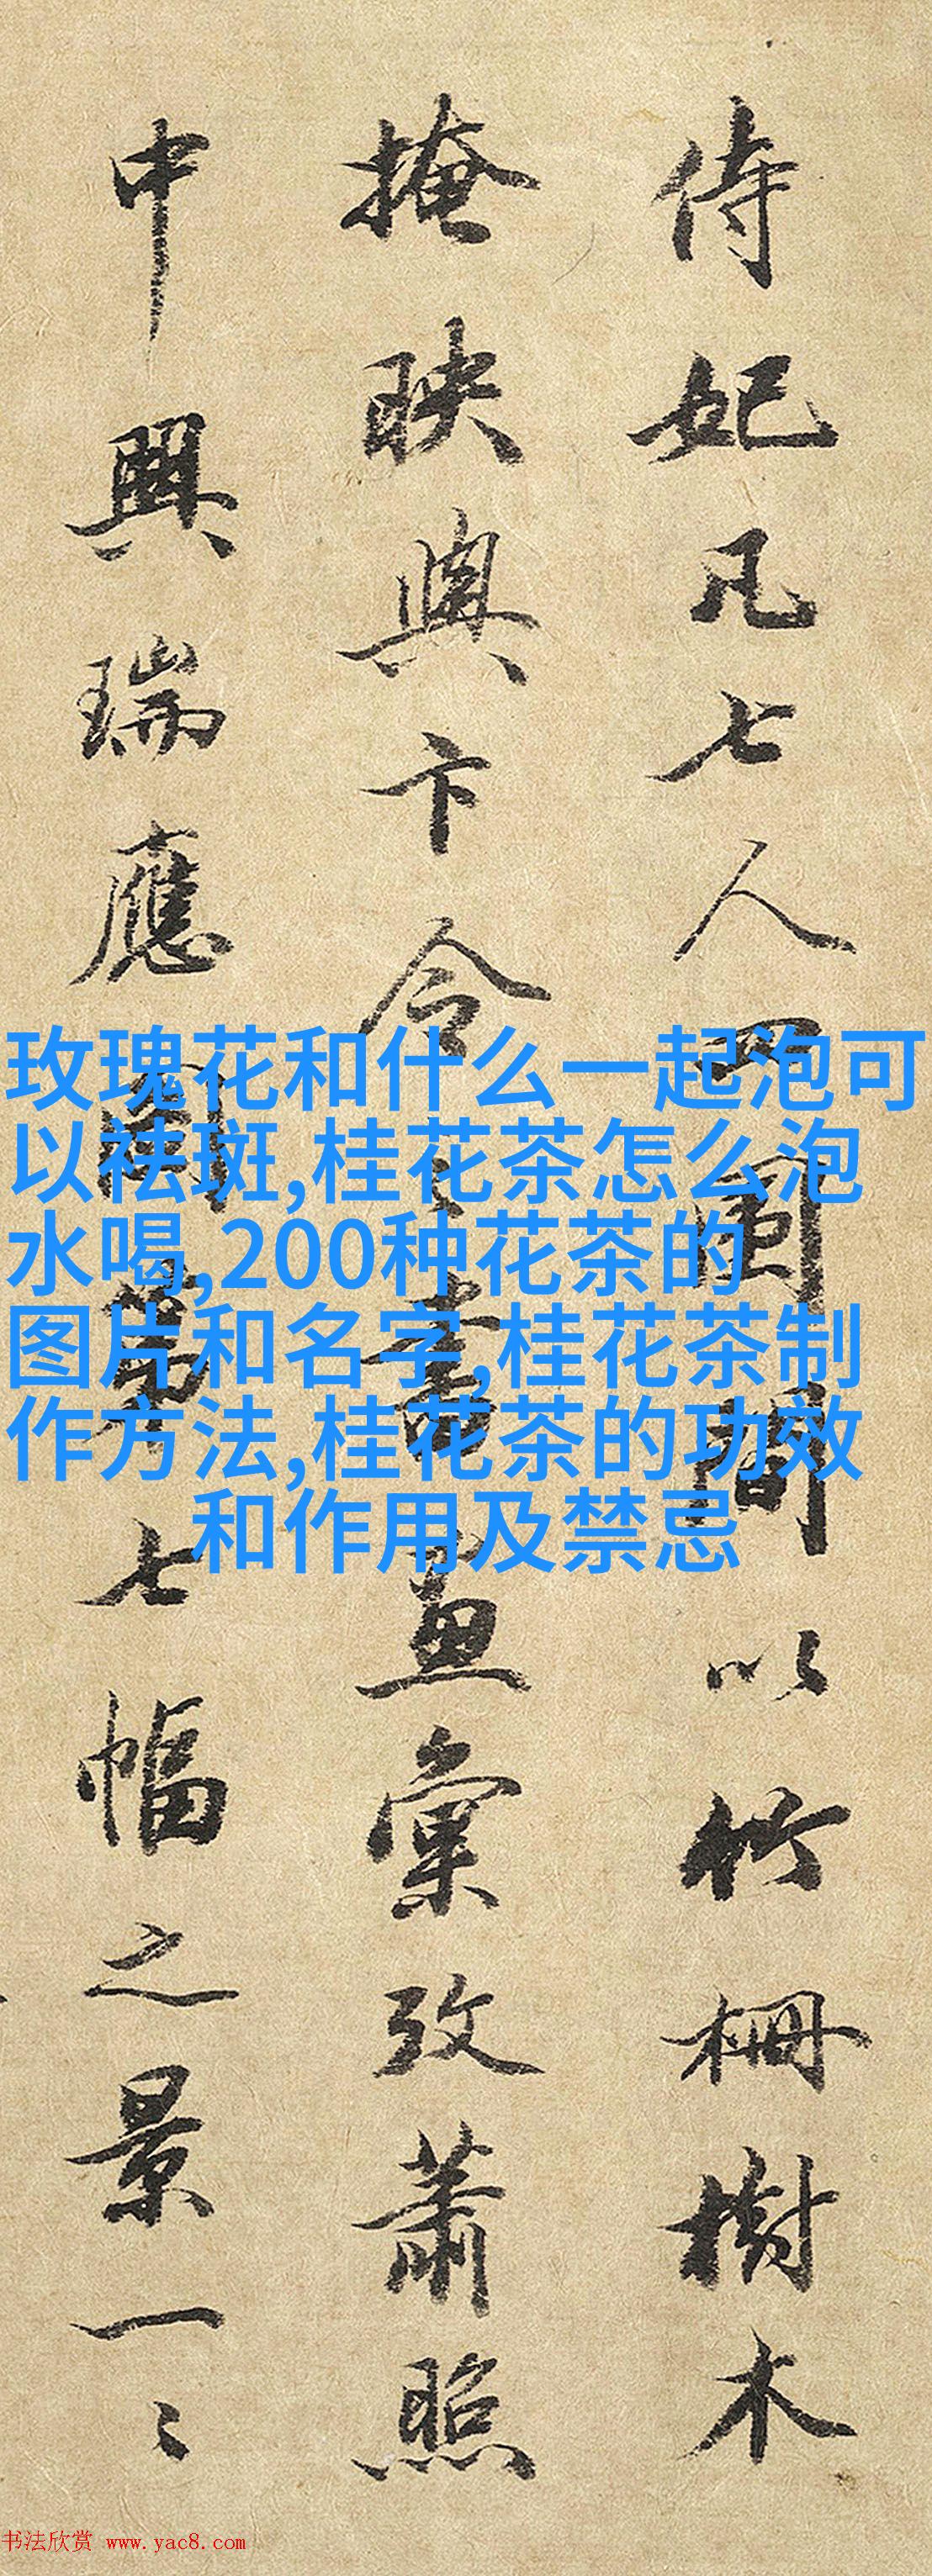 侍妃凡七人四圍間以竹柵樹木
掩映與卞令書畫彙攷蕭照
中興瑞應圖第七幅之景一〻
玫瑰花和什么一起泡可
以祛斑,桂花茶怎么泡
水喝,200种花茶的
图片和名字,桂花茶制
作方法,桂花茶的功效
和作用及禁忌
书法欣赏 www.yac8.com